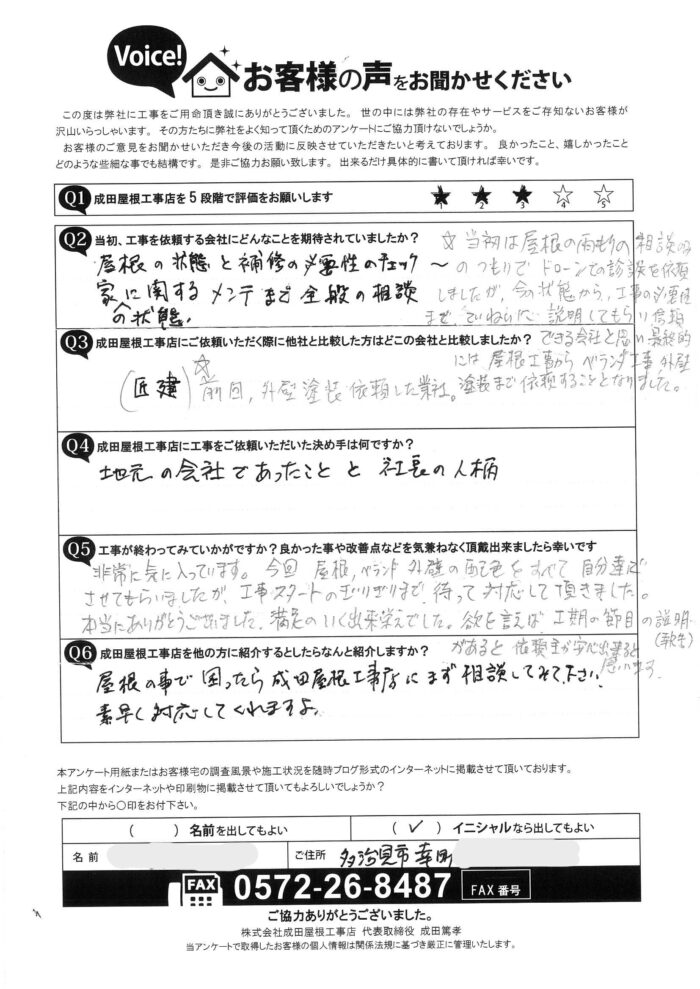 Voice!
お客様の声をお聞かせください
この度は弊社に工事をご用命頂き誠にありがとうございました。 世の中には弊社の存在やサービスをご存知ないお客様が
沢山いらっしゃいます。 その方たちに弊社をよく知って頂くためのアンケートにご協力頂けないでしょうか。
お客様のご意見をお聞かせいただき今後の活動に反映させていただきたいと考えております。 良かったこと、嬉しかったこと
どのような些細な事でも結構です。 是非ご協力お願い致します。 出来るだけ具体的に書いて頂ければ幸いです。
Q1 成田屋根工事店を5段階で評価をお願いします ★1 ★2 ★3 ☆4 ☆5
Q2 当初、工事を依頼する会社にどんなことを期待されていましたか?
屋根の状態と補修の必要性のチェック
家に関するメンテまで全般の相談
の状態、
☆当初は屋根の雨もりの相談のみ
〜のつもりでドローンでの診談を依頼
しましたが、今の状態から、工事の必要性
まで、ていねいに説明してもらい信頼
できる会社と思い最終的
には屋根工事からベランダ工事外壁
塗装まで依頼することとなりました。
Q3 成田屋根工事店にご依頼いただく際に他社と比較した方はどこの会社と比較しましたか?
(匠建)☆前回、外壁塗装依頼した業社。
Q4 成田屋根工事店に工事をご依頼いただいた決め手は何ですか?
地元の会社であったことと社長の人柄
Q5 工事が終わってみていかがですか?良かった事や改善点などを気兼ねなく頂戴出来ましたら幸いです
非常に気に入っています。今回屋根,ベランダ外壁の配色をすべて自分達で
させてもらいましたが、工事スタートのぎりぎりまで、待って対応して頂きました。
本当にありがとうございました。満足のいく出来栄えでした。欲を言えば工期の節目の説明
(報告)
があると依頼主が安心出来ると
思います。
Q6 成田屋根工事店を他の方に紹介するとしたらなんと紹介しますか?
屋根の事で困ったら成田屋根工事店にまず相談してみて下さい。
素早く対応してくれますよ。
本アンケート用紙またはお客様宅の調査風景や施工状況を随時ブログ形式のインターネットに掲載させて頂いております。
上記内容をインターネットや印刷物に掲載させて頂いてもよろしいでしょうか?
下記の中から〇印をお付下さい。
( ) 名前を出してもよい
( ✓ ) イニシャルなら出してもよい
名前
ご住所 多治見市幸町
FAX 0572-26-8487 FAX番号
ご協力ありがとうございました。
株式会社成田屋根工事店 代表取締役 成田篤孝
当アンケートで取得したお客様の個人情報は関係法規に基づき厳正に管理いたします。